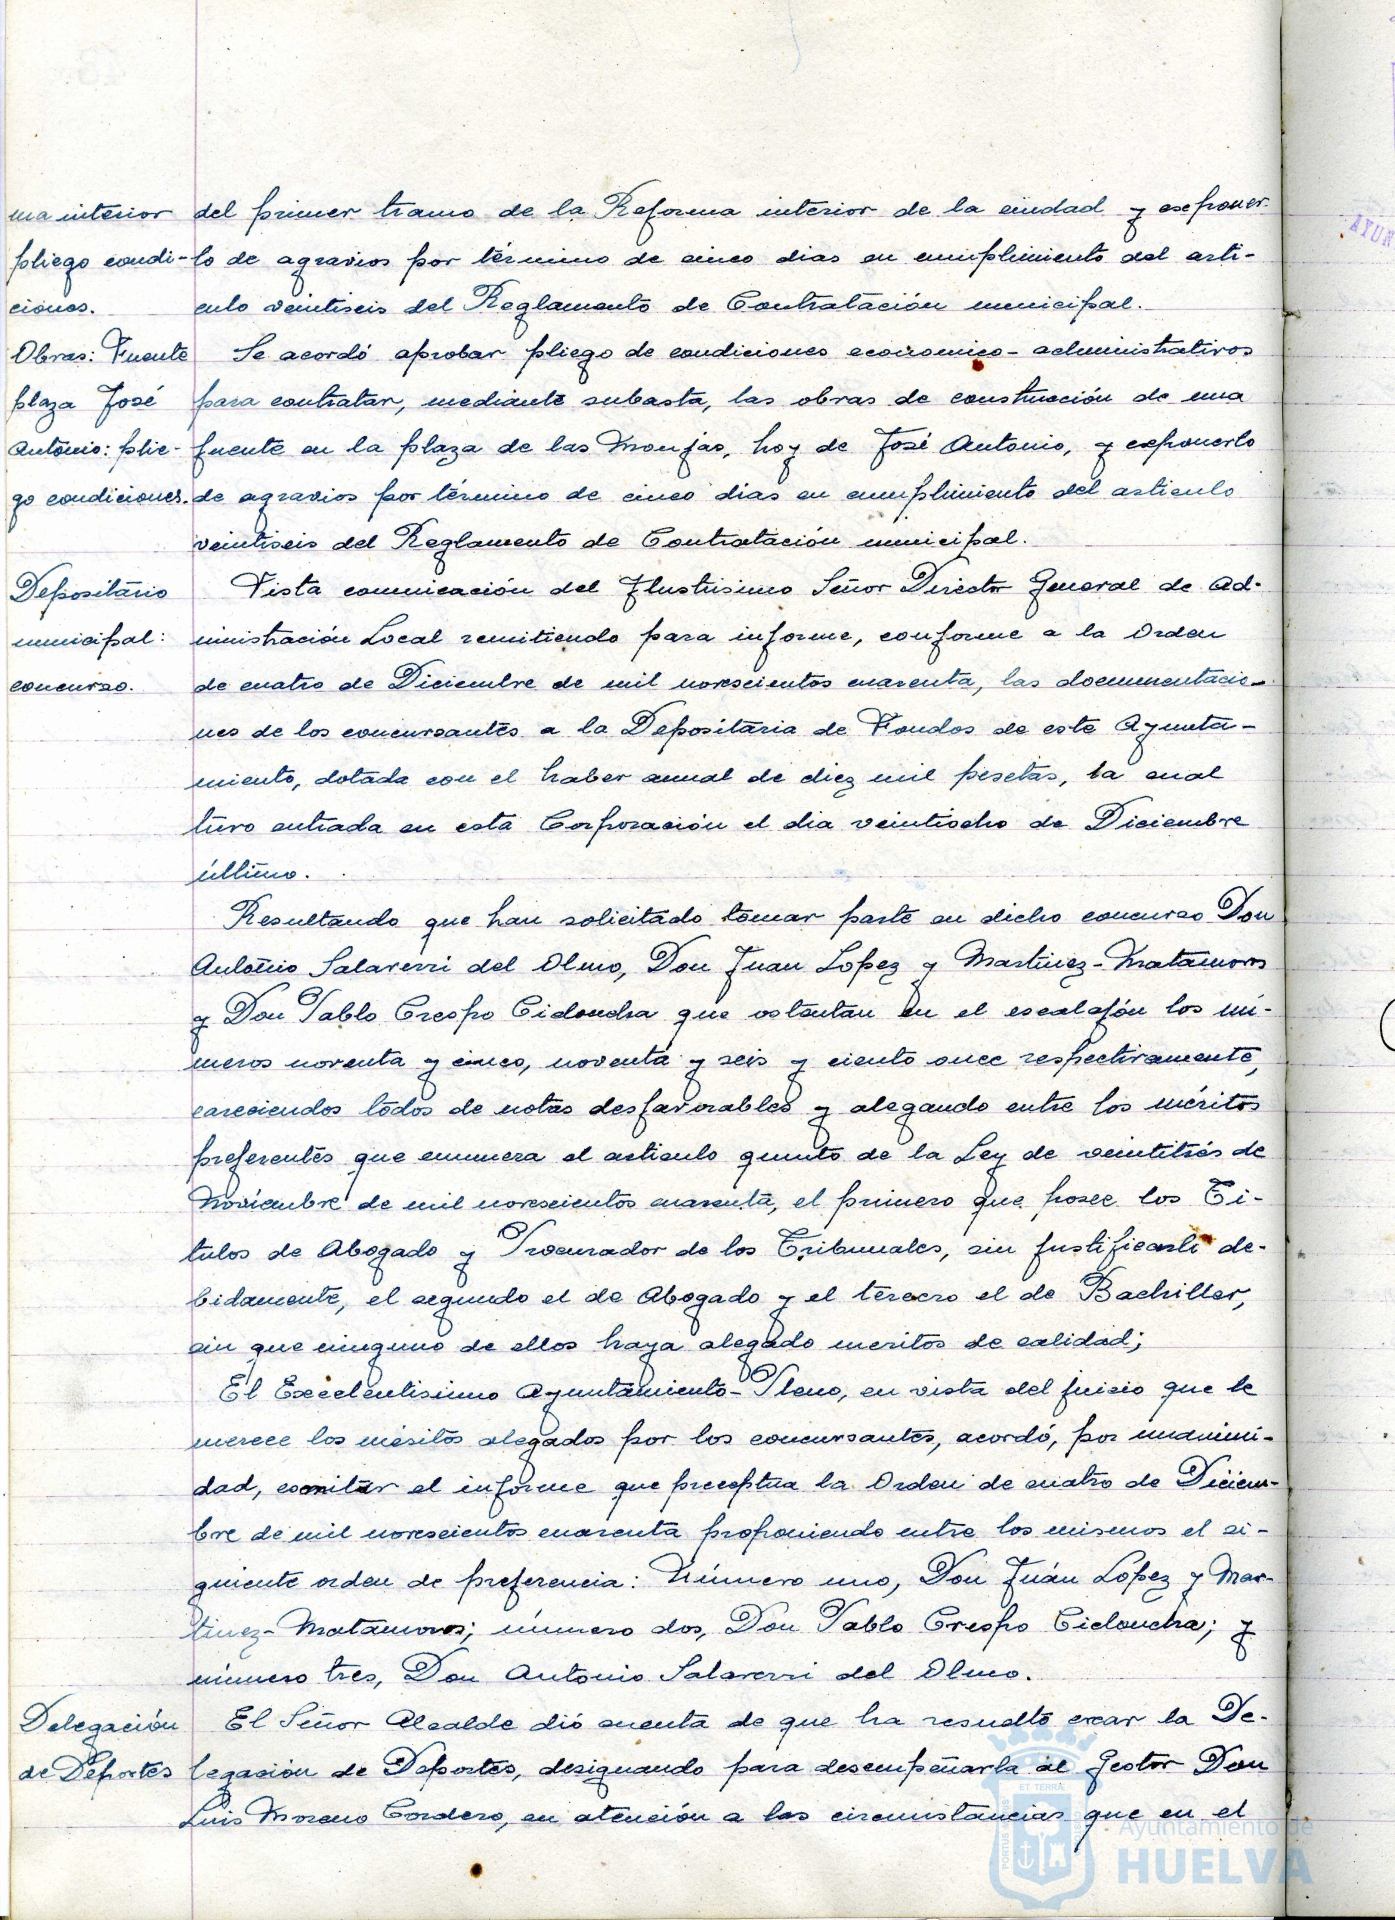 ma interior
pliego condi-
ciones.
del primer tramo de la Reforma interior de la ciudad y exponer-
lo de agravios por término de cinco dias en cumplimiento del arti-
culo veintiseis del Reglamento de Contratación municipal.
Obras: Fuente
plaza José
Antonio: plie-
go condiciones.
Se acordó aprobar pliego de condiciones economico-administrativos
para contratar, mediante subasta, las obras de construcción de una
fuente en la plaza de las Monjas, hoy de José Antonio, y exponerlo
de agravios por término de cinco dias en cumplimiento del articulo
veintiseis del Reglamento de Contratación municipal.
Depositario
municipal:
concurso.
Vista comunicación del Ilustrisimo Señor Director General de Ad-
ministración Local remitiendo para informe, conforme a la Orden
de cuatro de Diciembre de mil novescientos cuarenta, las documentacio-
nes de los concursantes a la Depositaria de Fondos de este Ayunta-
miento, dotada con el haber anual de diez mil pesetas, la cual
tuvo entrada en esta Corporación el dia veintiocho de Diciembre
último.
Resultando que han solicitado tomar parte en dicho concurso Don
Antonio Salaverri del Olmo, Don Juan Lopez y Martinez-Matamoros
y Don Pablo Crespo Cidoncha que ostentan en el escalafón los nú-
meros noventa y cinco, noventa y seis y ciento once respectivamente,
careciendos todos de notas desfavorables y alegando entre los méritos
preferentes que enumera el articulo quinto de la Ley de veintitrés de
Noviembre de mil novescientos cuarenta, el primero que posee los Ti-
tulos de Abogado y Procurador de los Tribunales, sin justificarlo de-
bidamente, el segundo el de Abogado y el tercero el de Bachiller,
sin que ninguno de ellos haya alegado meritos de calidad;
El Excelentisimo Ayuntamiento-Pleno, en vista del juicio que le
merece los méritos alegados por los concursantes, acordó, por unanimi-
dad, emitir el informe que preceptua la Orden de cuatro de Diciem-
bre de mil novescientos cuarenta proponiendo entre los mismos el si-
guiente orden de preferencia: Número uno, Don Juán López y Mar-
tinez-Matamoros; número dos, Don Pablo Crespo Cidoncha; y
número tres, Don Antonio Salaverri del Olmo.
Delegación
de Deportes
El Señor Alcalde dió cuenta de que ha resuelto crear la De-
legación de Deportes, designando para desempeñarla al Gestor Don
Luis Moreno Cordero, en atención a las circunstancias que en el
AYUN
ET TERRAE
Ayuntamiento de
HUELVA